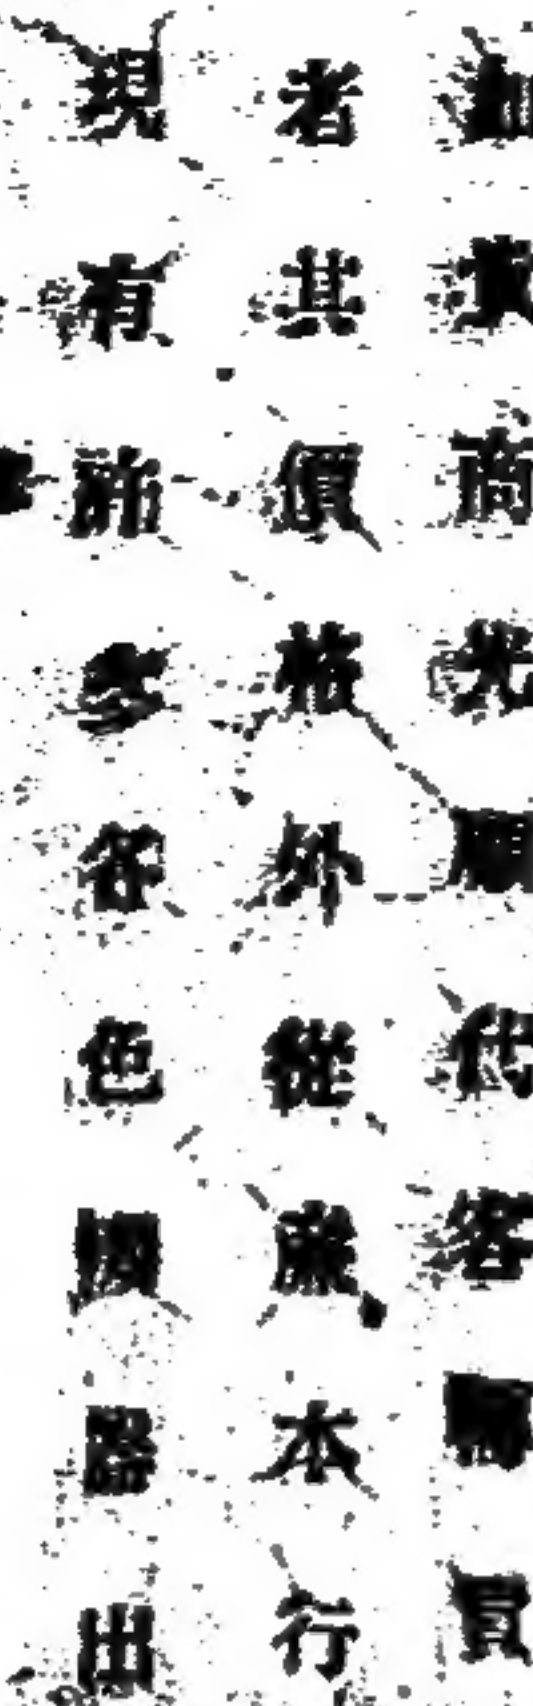 商光顧代客閣買
者其價格外從廉本行
現有許多各色國器出